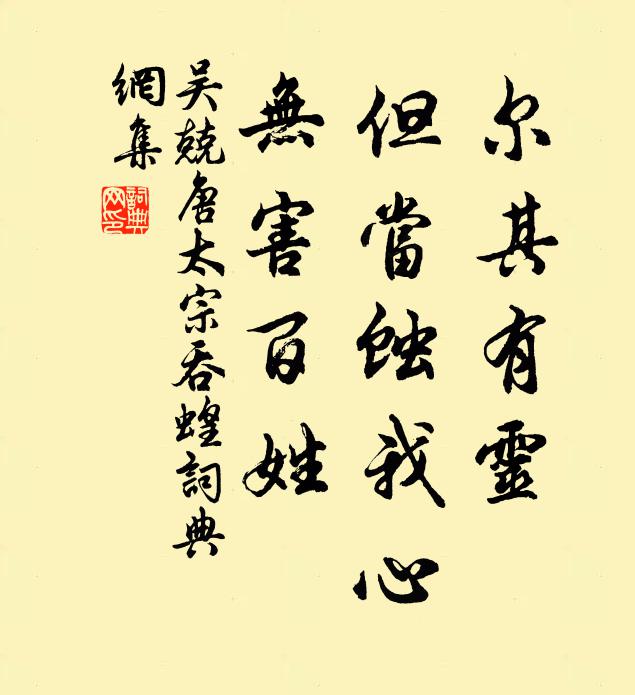 尔其有靈
但當蝕我心
無害百姓
吴兢唐太宗吞蝗詞典
網集
詞典
网印